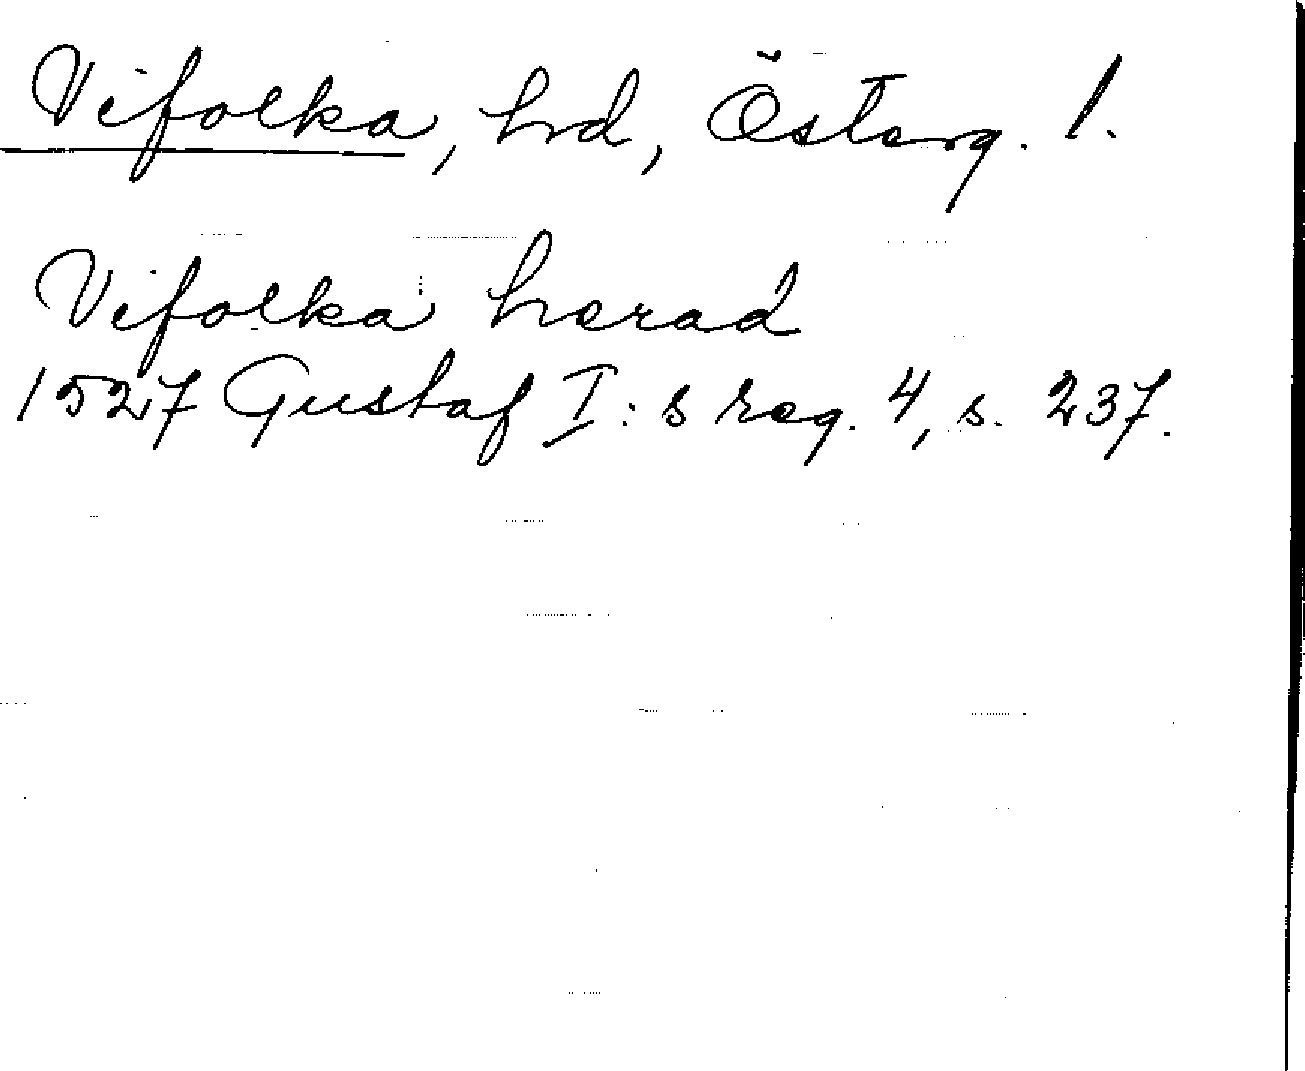 Vifolka, hrd, Österg. l.
Vifolka herad
1527 Gustaf I:s reg. 4, s. 237.